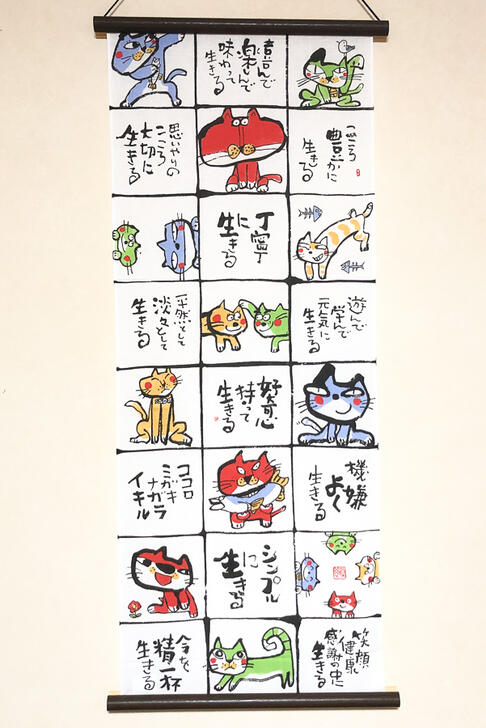 喜んで
楽しんで
味わって
生きる
思いやりの
こころ
大切に
生きる
こころ
豊かに
生きる
丁寧
に
生きる
平然として
淡々として
生きる
遊んで
学んで
元気に
生きる
好奇心
持って
生きる
ココロ
ミガキ
ナガラ
イキル
機嫌
よく
生きる
シンプル
に
生きる
今を
精一杯
生きる
笑顔
健康
感謝の中に
生きる